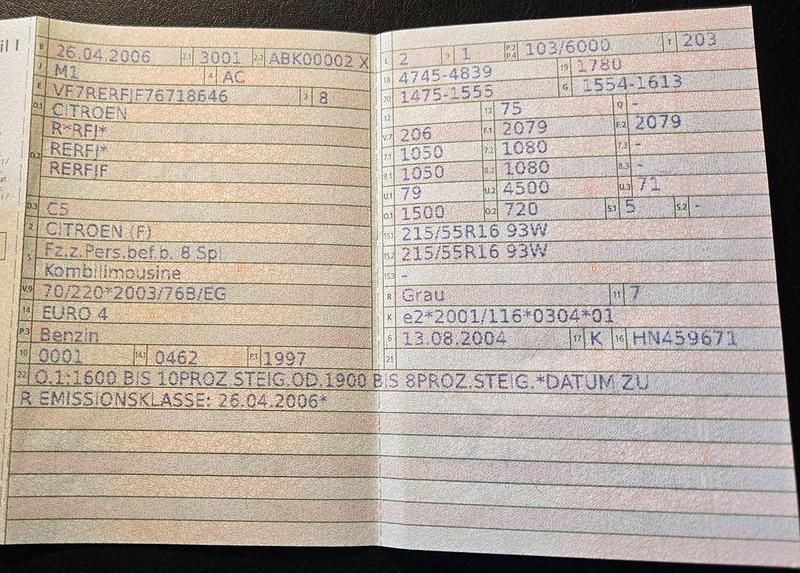 il I
B 26.04.2006 2.1 3001 2.2 ABK00002 X
J M1 4 AC
E VF7RERFJF76718646 3 8
D.1 CITROEN
D.2 R*RFJ*
RERFJ*
RERFJF
D.3 C5
2 CITROEN (F)
5 Fz.z.Pers.bef.b. 8 Spl
Kombilimousine
V.9 70/220*2003/76B/EG
14 EURO 4
P.3 Benzin
10 0001 14.1 0462 P.1 1997
L 2 9 1 P.2 P.4 103/6000 T 203
18 4745-4839 19 1780
20 1475-1555 G 1554-1613
12 13 75 Q -
V.7 206 F.1 2079 F.2 2079
7.1 1050 7.2 1080 7.3 -
8.1 1050 8.2 1080 8.3 -
U.1 79 U.2 4500 U.3 71
O.1 1500 O.2 720 S.1 5 S.2 -
15.1 215/55R16 93W
15.2 215/55R16 93W
15.3 -
R Grau 11 7
K e2*2001/116*0304*01
6 13.08.2004 17 K 16 HN459671
21
22 O.1:1600 BIS 10PROZ.STEIG.OD.1900 BIS 8PROZ.STEIG.*DATUM ZU
R EMISSIONSKLASSE: 26.04.2006*